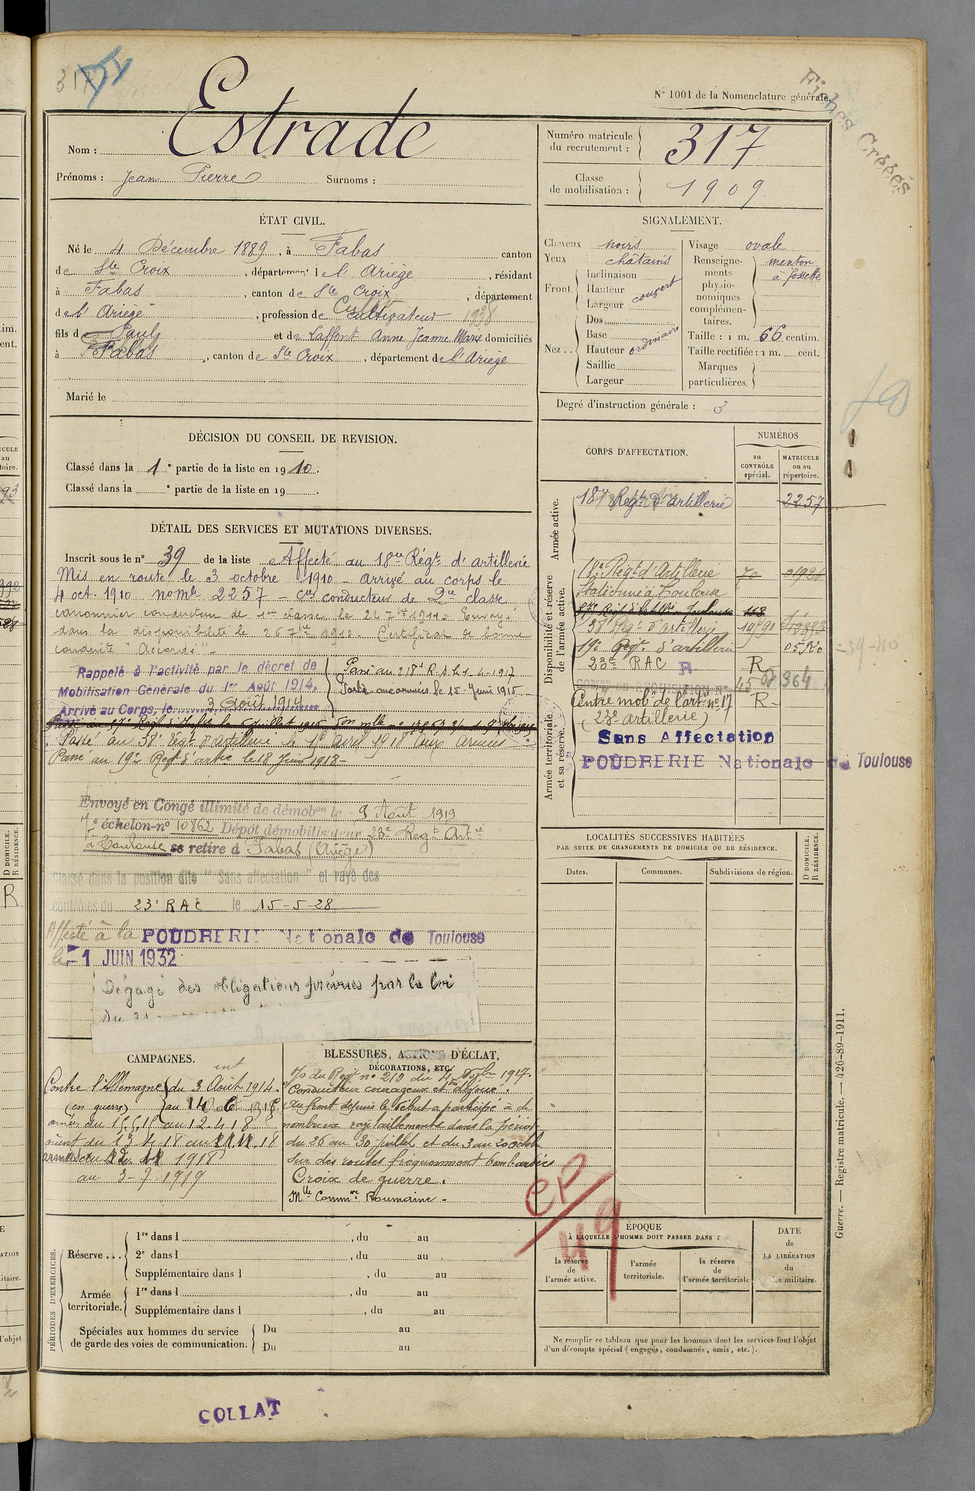 317
Nº 1001 de la Nomenclature générale.
Fiches Créées
Nom : Estrade
Prénoms : Jean Pierre Surnoms :
Numéro matricule du recrutement : 317
Classe de mobilisation : 1909
ÉTAT CIVIL.
Né le 4 Décembre 1889, à Fabas canton
de Ste Croix, département de l'Ariège, résidant
à Fabas, canton de Ste Croix, département
de l'Ariège, profession de Cultivateur 1938
fils de Paul et de Laffont Anne Jeanne Marie domiciliés
à Fabas, canton de Ste Croix, département de l'Ariège
Marié le
SIGNALEMENT.
Cheveux noirs
Yeux châtains
Front. Inclinaison
Hauteur
Largeur couvert
Nez.. Dos
Base
Hauteur ordinaire
Saillie
Largeur
Visage ovale
Renseignements physionomiques complémentaires. menton à fossette
Taille : 1 m. 66 centim.
Taille rectifiée : 1 m. cent.
Marques particulières.
Degré d'instruction générale : 3
DÉCISION DU CONSEIL DE REVISION.
Classé dans la 1e partie de la liste en 1910.
Classé dans la e partie de la liste en 19
DÉTAIL DES SERVICES ET MUTATIONS DIVERSES.
Inscrit sous le nº 39 de la liste Affecté au 18me Régt d'artillerie
Mis en route le 3 octobre 1910 - arrivé au corps le
4 oct. 1910 no mle 2257 - Cer conducteur de 2me classe
canonnier conducteur de 1re classe le 26 7bre 1911. Envoyé
dans la disponibilité le 26 7bre 1912. Certificat de bonne
conduite "Accordé"
Rappelé à l'activité par le décret de
Mobilisation Générale du 1er Août 1914.
Arrivé au Corps, le 3 Août 1914
Passé au 218e R.A. le 1-4-1917
Passé au 38e Régt d'artillerie le 1er Avril 1918 (aux armées)
Passé au 19e Régt d'artie le 18 juin 1918-
Envoyé en Congé illimité de démobon le 9 Août 1919
échelon-nº 10862 Dépôt démobilisateur 23e Régt Artie
à Toulouse se retire à Fabas (Ariège)
Classé dans la position dite "Sans affectation" et rayé des
contrôles du 23e RAC le 15-5-28
Affecté à la POUDRERIE Nationale de Toulouse
le -1 JUIN 1932
Dégagé des obligations prévues par la loi
CORPS D'AFFECTATION.
NUMÉROS
au CONTRÔLE spécial.
MATRICULE ou au répertoire.
Armée active.
18e Régt d'artillerie 2257
Disponibilité et réserve de l'armée active.
Régt d'Artillerie
à Toulouse
38e Régt d'artillerie
19e Régt d'artillerie
23e RAC R R
Armée territoriale et sa réserve.
Centre mobre de l'art. nº 17 R-
(23e artillerie)
Sans Affectation
POUDRERIE Nationale de Toulouse
LOCALITÉS SUCCESSIVES HABITÉES
PAR SUITE DE CHANGEMENTS DE DOMICILE OU DE RÉSIDENCE.
Dates. Communes. Subdivisions de région. D DOMICILE. R RÉSIDENCE.
CAMPAGNES.
Contre l'Allemagne du 3 Août 1914
(en guerre)
au 12.4.18
du 13 4 18
1918
au 3-9-1919
BLESSURES, ACTIONS D'ÉCLAT, DÉCORATIONS, ETC.
O/ du Régt nº 210 du 4 Nvbre 1917
Conducteur courageux et dévoué.
Au front depuis le début a participé à de
nombreux ravitaillements dans la période
du 26 au 30 juillet et du 3 au 20 octobre
sur des routes fréquemment bombardées
Croix de guerre.
Mlle Commve Roumaine -
CP
49
PÉRIODES D'EXERCICES.
Réserve...
1re dans l , du au
2e dans l , du au
Supplémentaire dans l , du au
Armée territoriale.
1re dans l , du au
Supplémentaire dans l , du au
Spéciales aux hommes du service de garde des voies de communication.
Du au
Du au
ÉPOQUE
À LAQUELLE L'HOMME DOIT PASSER DANS :
la réserve de l'armée active.
l'armée territoriale.
la réserve de l'armée territoriale
DATE de LA LIBÉRATION du service militaire.
Ne remplir ce tableau que pour les hommes dont les services font l'objet d'un décompte spécial (engagés, condamnés, omis, etc.).
Guerre. — Registre matricule. — 426-89-1911.
COLLAT